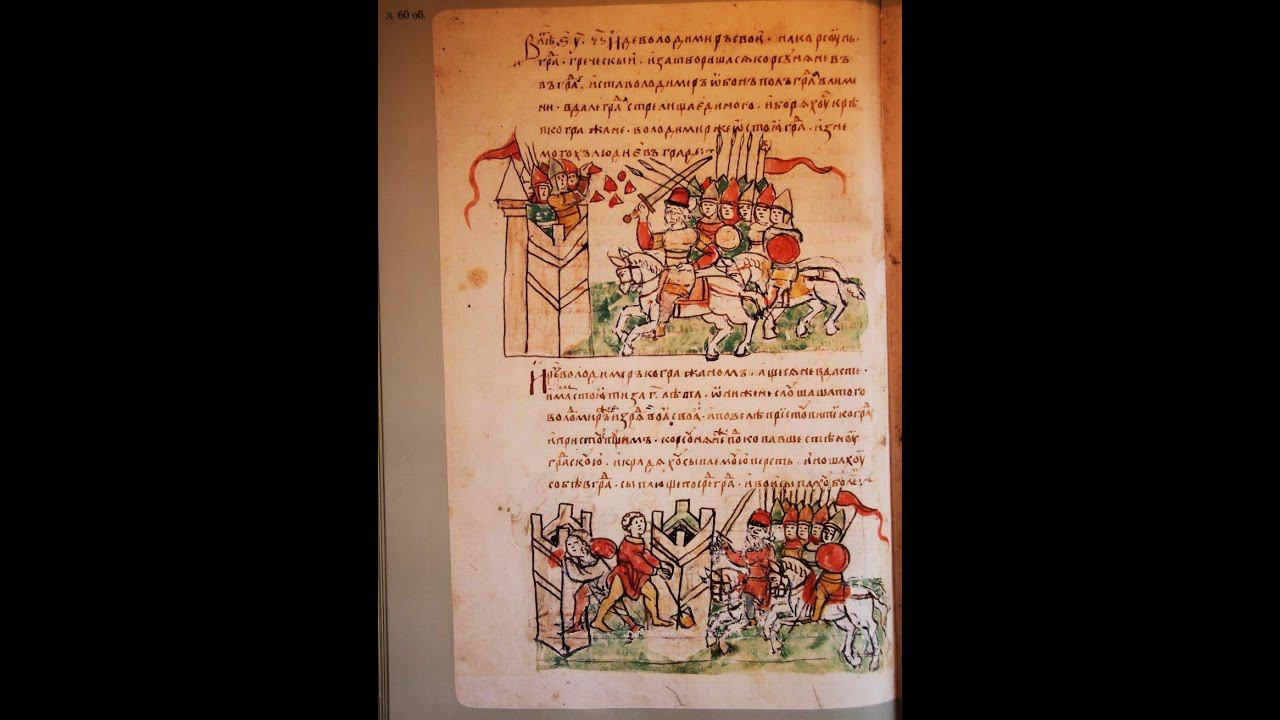 л. 60 об.
иде володимиръ свои · на корсунь ·
гра҃ · греческыи · и затворишася корсуняне въ
въ гра҃ · и ста володимеръ ѡбонъ полъ гра҃ в лиме
ни · вдале гра҃ стрелища единого · и боряхоу крѣ
пко гражане · володимир же ѡстои гра҃ · изне
могохъ людие въ граде
и реч҃ володимеръ ко гражаномъ · аще ся не вдасте ·
имамъ стояти за г҃ лѣта · ѡни же не слоушаша того
володимиръ же изряди воя своя · и повелѣ пристоупити ко градоу
и пристоупившимъ · корсоуняне подкопавше стѣноу
градскоую · и крадяхоу сыплемоую персть · и ношахоу
собѣ в гра҃ · сыплюще посредѣ гра҃ · и вои сыпахоу боле